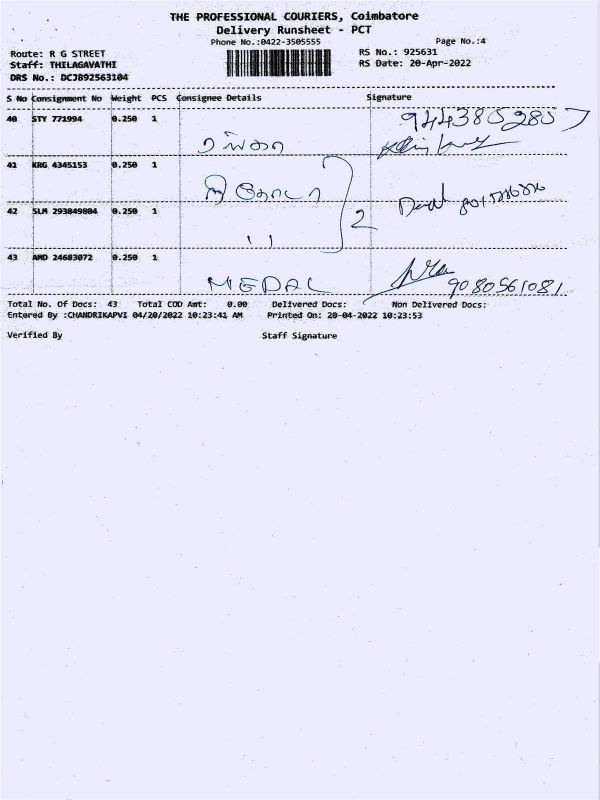 THE PROFESSIONAL COURIERS, Coimbatore
Delivery Runsheet - PCT
Phone No.:0422-3505555 Page No.:4
Route: R G STREET RS No.: 925631
Staff: THILAGAVATHI RS Date: 20-Apr-2022
DRS No.: DCJB92563104
S No Consignment No Weight PCS Consignee Details Signature
40 STY 771994 0.250 1 9443802807
41 KRG 4345153 0.250 1
2
42 SLM 293849804 0.250 1
43 AMD 24683072 0.250 1
MEDAL 9080561081
Total No. Of Docs: 43 Total COD Amt: 0.00 Delivered Docs: Non Delivered Docs:
Entered By :CHANDRIKAPVI 04/20/2022 10:23:41 AM Printed On: 20-04-2022 10:23:53
Verified By Staff Signature